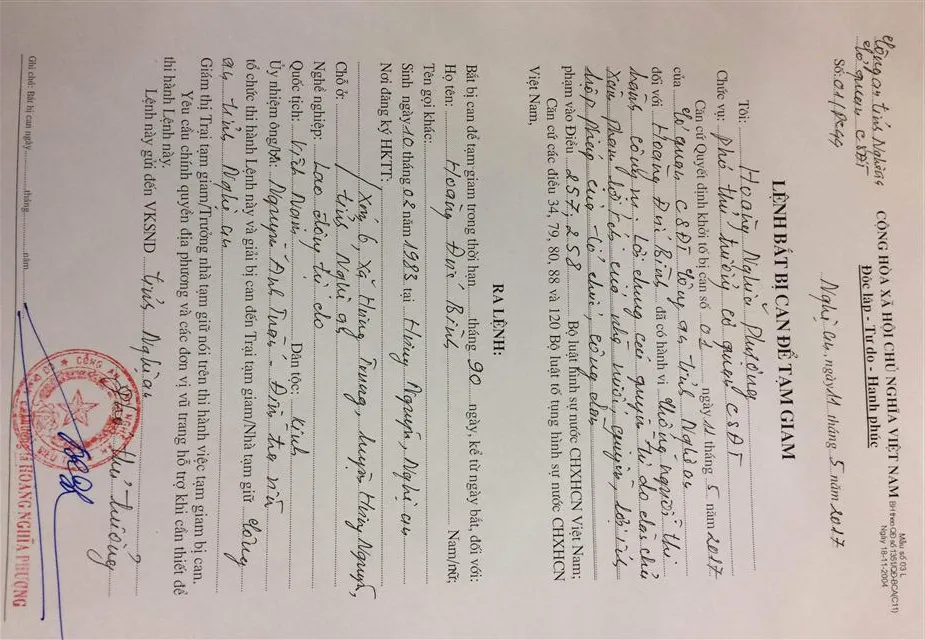 Mẫu số 03 L
BH theo QĐ số 1351/QĐ-BCA(C11)
Ngày 18-11-2004
Công an tỉnh Nghệ an
Cơ quan CSĐT
Số: 04/PC44
CỘNG HÒA XÃ HỘI CHỦ NGHĨA VIỆT NAM
Độc lập - Tự do - Hạnh phúc
Nghệ an, ngày 11 tháng 5 năm 2017
LỆNH BẮT BỊ CAN ĐỂ TẠM GIAM
Tôi: Hoàng Nghĩa Phương
Chức vụ: Phó thủ trưởng cơ quan CSĐT
Căn cứ Quyết định khởi tố bị can số 02 ngày 11 tháng 5 năm 2017
của Cơ quan CSĐT Công an tỉnh Nghệ an
đối với Hoàng Đức Bình đã có hành vi chống người thi
hành công vụ; Lợi dụng các quyền tự do dân chủ
xâm phạm lợi ích của nhà nước, quyền, lợi ích
hợp pháp của tổ chức, công dân
phạm vào Điều 257, 258 Bộ luật hình sự nước CHXHCN Việt Nam;
Căn cứ các điều 34, 79, 80, 88 và 120 Bộ luật tố tụng hình sự nước CHXHCN
Việt Nam,
RA LỆNH:
Bắt bị can để tạm giam trong thời hạn tháng 90 ngày, kể từ ngày bắt, đối với:
Họ tên: Hoàng Đức Bình Nam/nữ:
Tên gọi khác:
Sinh ngày 10 tháng 02 năm 1983 tại Hưng Nguyên, Nghệ an
Nơi đăng ký HKTT:
Chỗ ở: Xóm 6, xã Hưng Trung, huyện Hưng Nguyên,
tỉnh Nghệ an
Nghề nghiệp: Lao động tự do
Quốc tịch: Việt Nam Dân tộc: Kinh
Ủy nhiệm ông/bà: Nguyễn Anh Tuấn - Điều tra viên
tổ chức thi hành Lệnh này và giải bị can đến Trại tạm giam/Nhà tạm giữ Công
an tỉnh Nghệ an
Giám thị Trại tạm giam/Trưởng nhà tạm giữ nói trên thi hành việc tạm giam bị can.
Yêu cầu chính quyền địa phương và các đơn vị vũ trang hỗ trợ khi cần thiết để
thi hành Lệnh này.
Lệnh này gửi đến VKSND tỉnh Nghệ an
Phó thủ trưởng
HOÀNG NGHĨA PHƯƠNG
Ghi chế: Bắt bị can ngày tháng năm